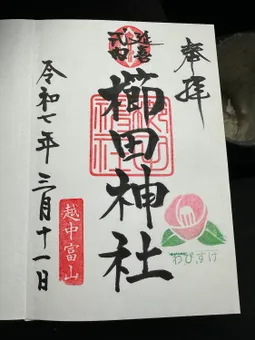 奉拝
延喜
式内
櫛田神社
わびすけ
越中富山
令和七年 三月十一日